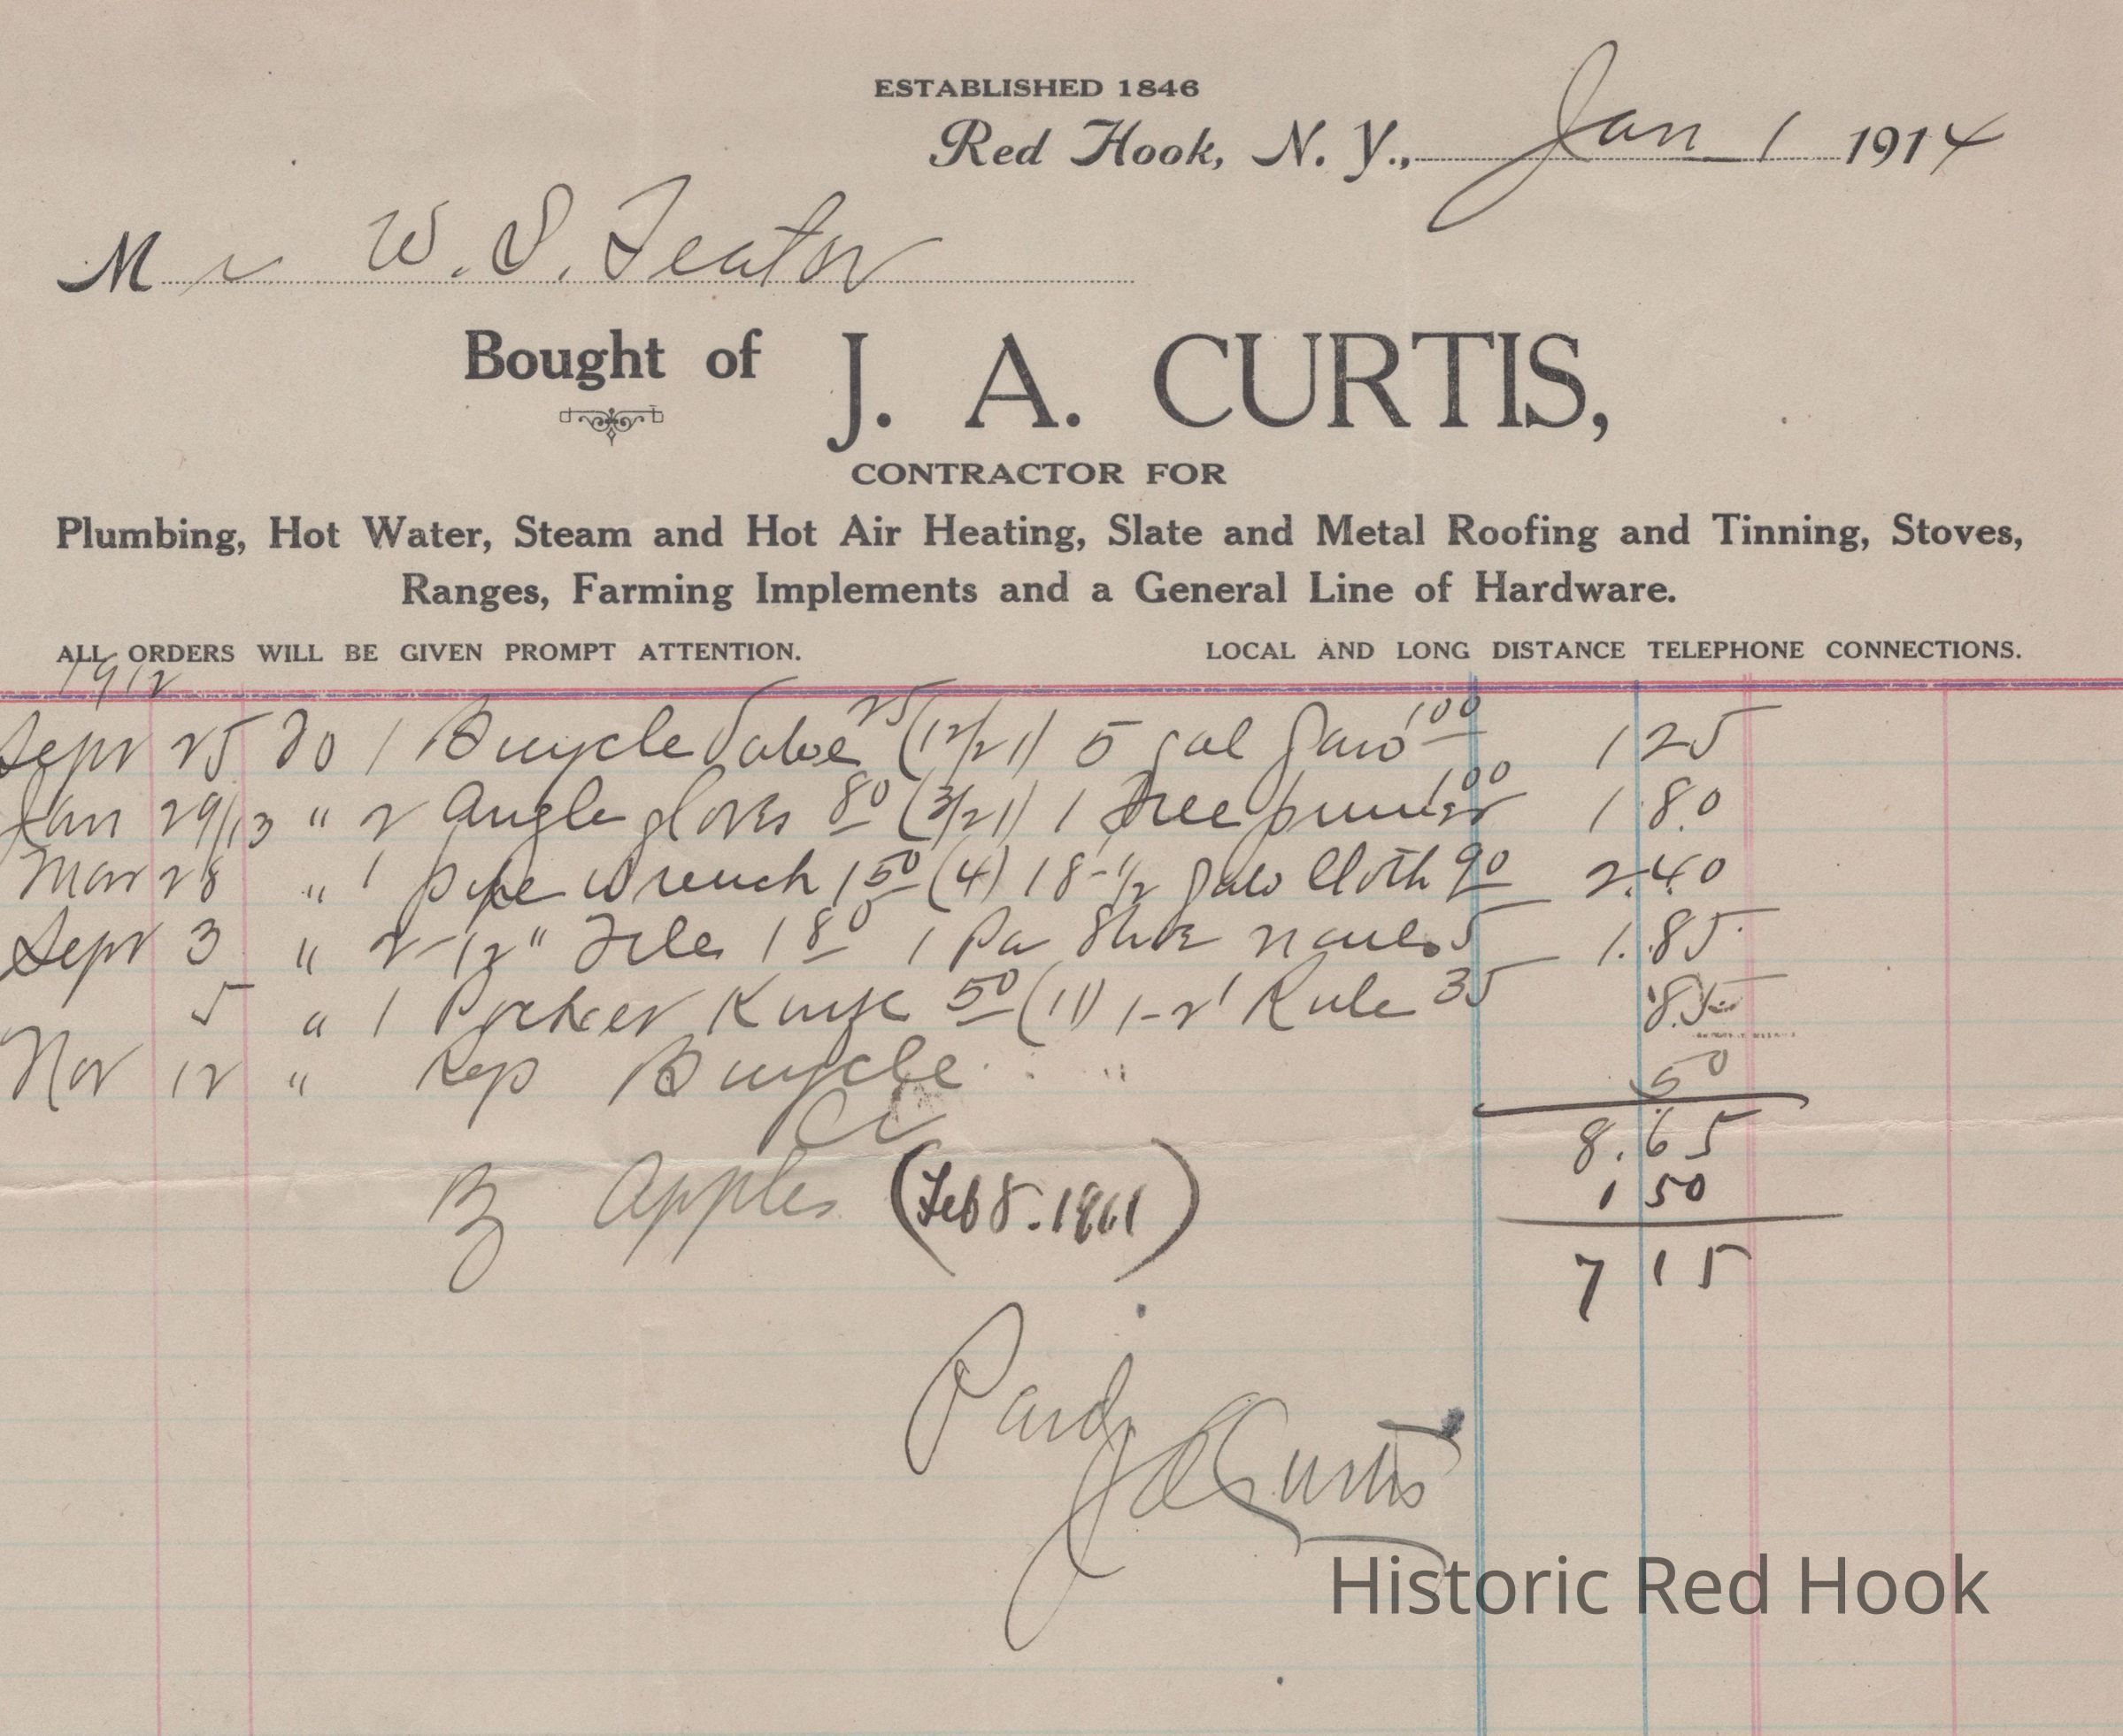 ESTABLISHED 1846
Red Hook, N. Y., Jan 1 1914
Mr W. S. Teator
Bought of J. A. CURTIS,
CONTRACTOR FOR
Plumbing, Hot Water, Steam and Hot Air Heating, Slate and Metal Roofing and Tinning, Stoves,
Ranges, Farming Implements and a General Line of Hardware.
ALL ORDERS WILL BE GIVEN PROMPT ATTENTION. LOCAL AND LONG DISTANCE TELEPHONE CONNECTIONS.
1912
Sept 25 To 1 Bicycle Valve 25 (12/21) 5 gal 100 1 25
Jan 29/13 " 2 Angle gloves 80 (3/21) 1 Tree pruner 100 1.80
Mar 28 " 1 pipe wrench 1 50 (4) 18-1/2 Cloth 90 2.40
Sept 3 " 2-12" Files 1 80 1 Pa Shoe nails 5 1.85
5 " 1 Pocket Knife 50 (11) 1-2' Rule 35 .85
Nov 12 " Rep Bicycle 50
8.65
Cr
By Apples (Feb 8. 1961) 1 50
7 15
Paid
J A Curtis
Historic Red Hook